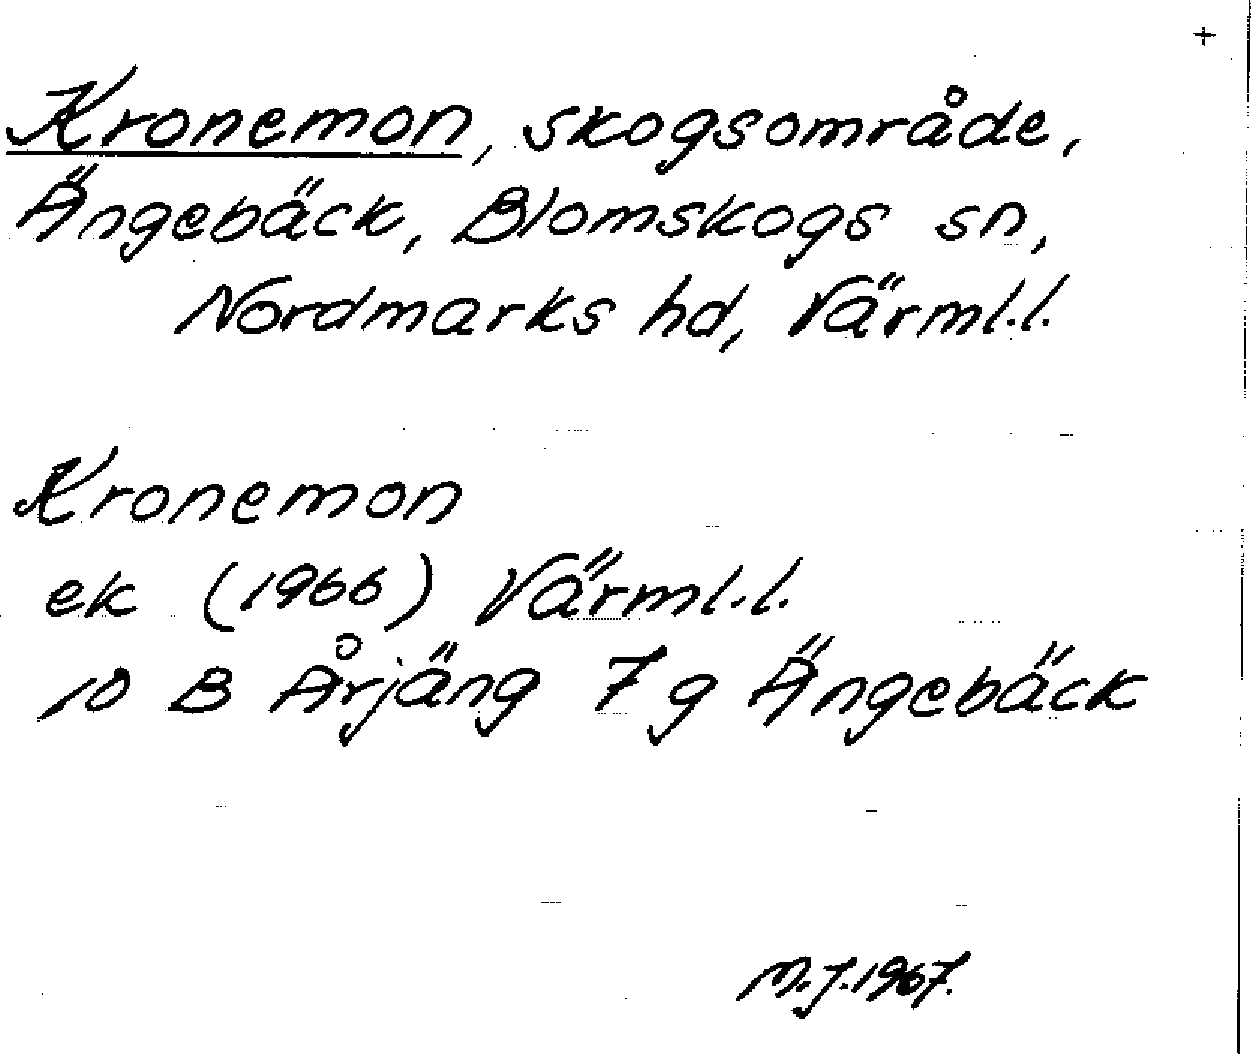 +
Kronemon, skogsområde,
Ängebäck, Blomskogs sn,
Nordmarks hd, Värml.l.
Kronemon
ek (1966) Värml.l.
10 B Årjäng 7g Ängebäck
M.J. 1967.